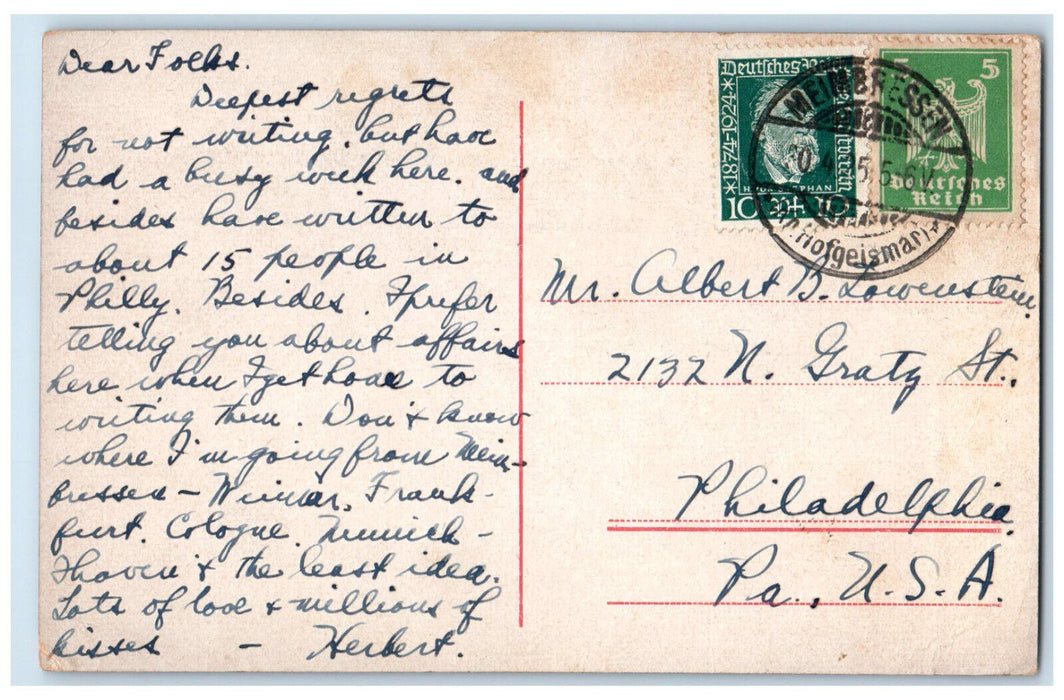 Dear Folks.
Deepest regrets
for not writing, but have
had a busy week here. and
besides have written to
about 15 people in
Philly. Besides, I prefer
telling you about affairs
here when I get home to
writing them. Don't know
where I'm going from Meim-
bressen - Weimar, Frank-
furt, Cologne, Munich -
I haven't the least idea.
Lots of love & millions of
kisses - Herbert.
Deutsches Reich
*1874-1924*
Weltpostverein
H. VON STEPHAN
10 10
5 5
Deutsches
Reich
MEIMBRESSEN
5-6 N
Hofgeismar
Mr. Albert B. Lowenstein
2132 N. Gratz St.,
Philadelphia
Pa., U.S.A.